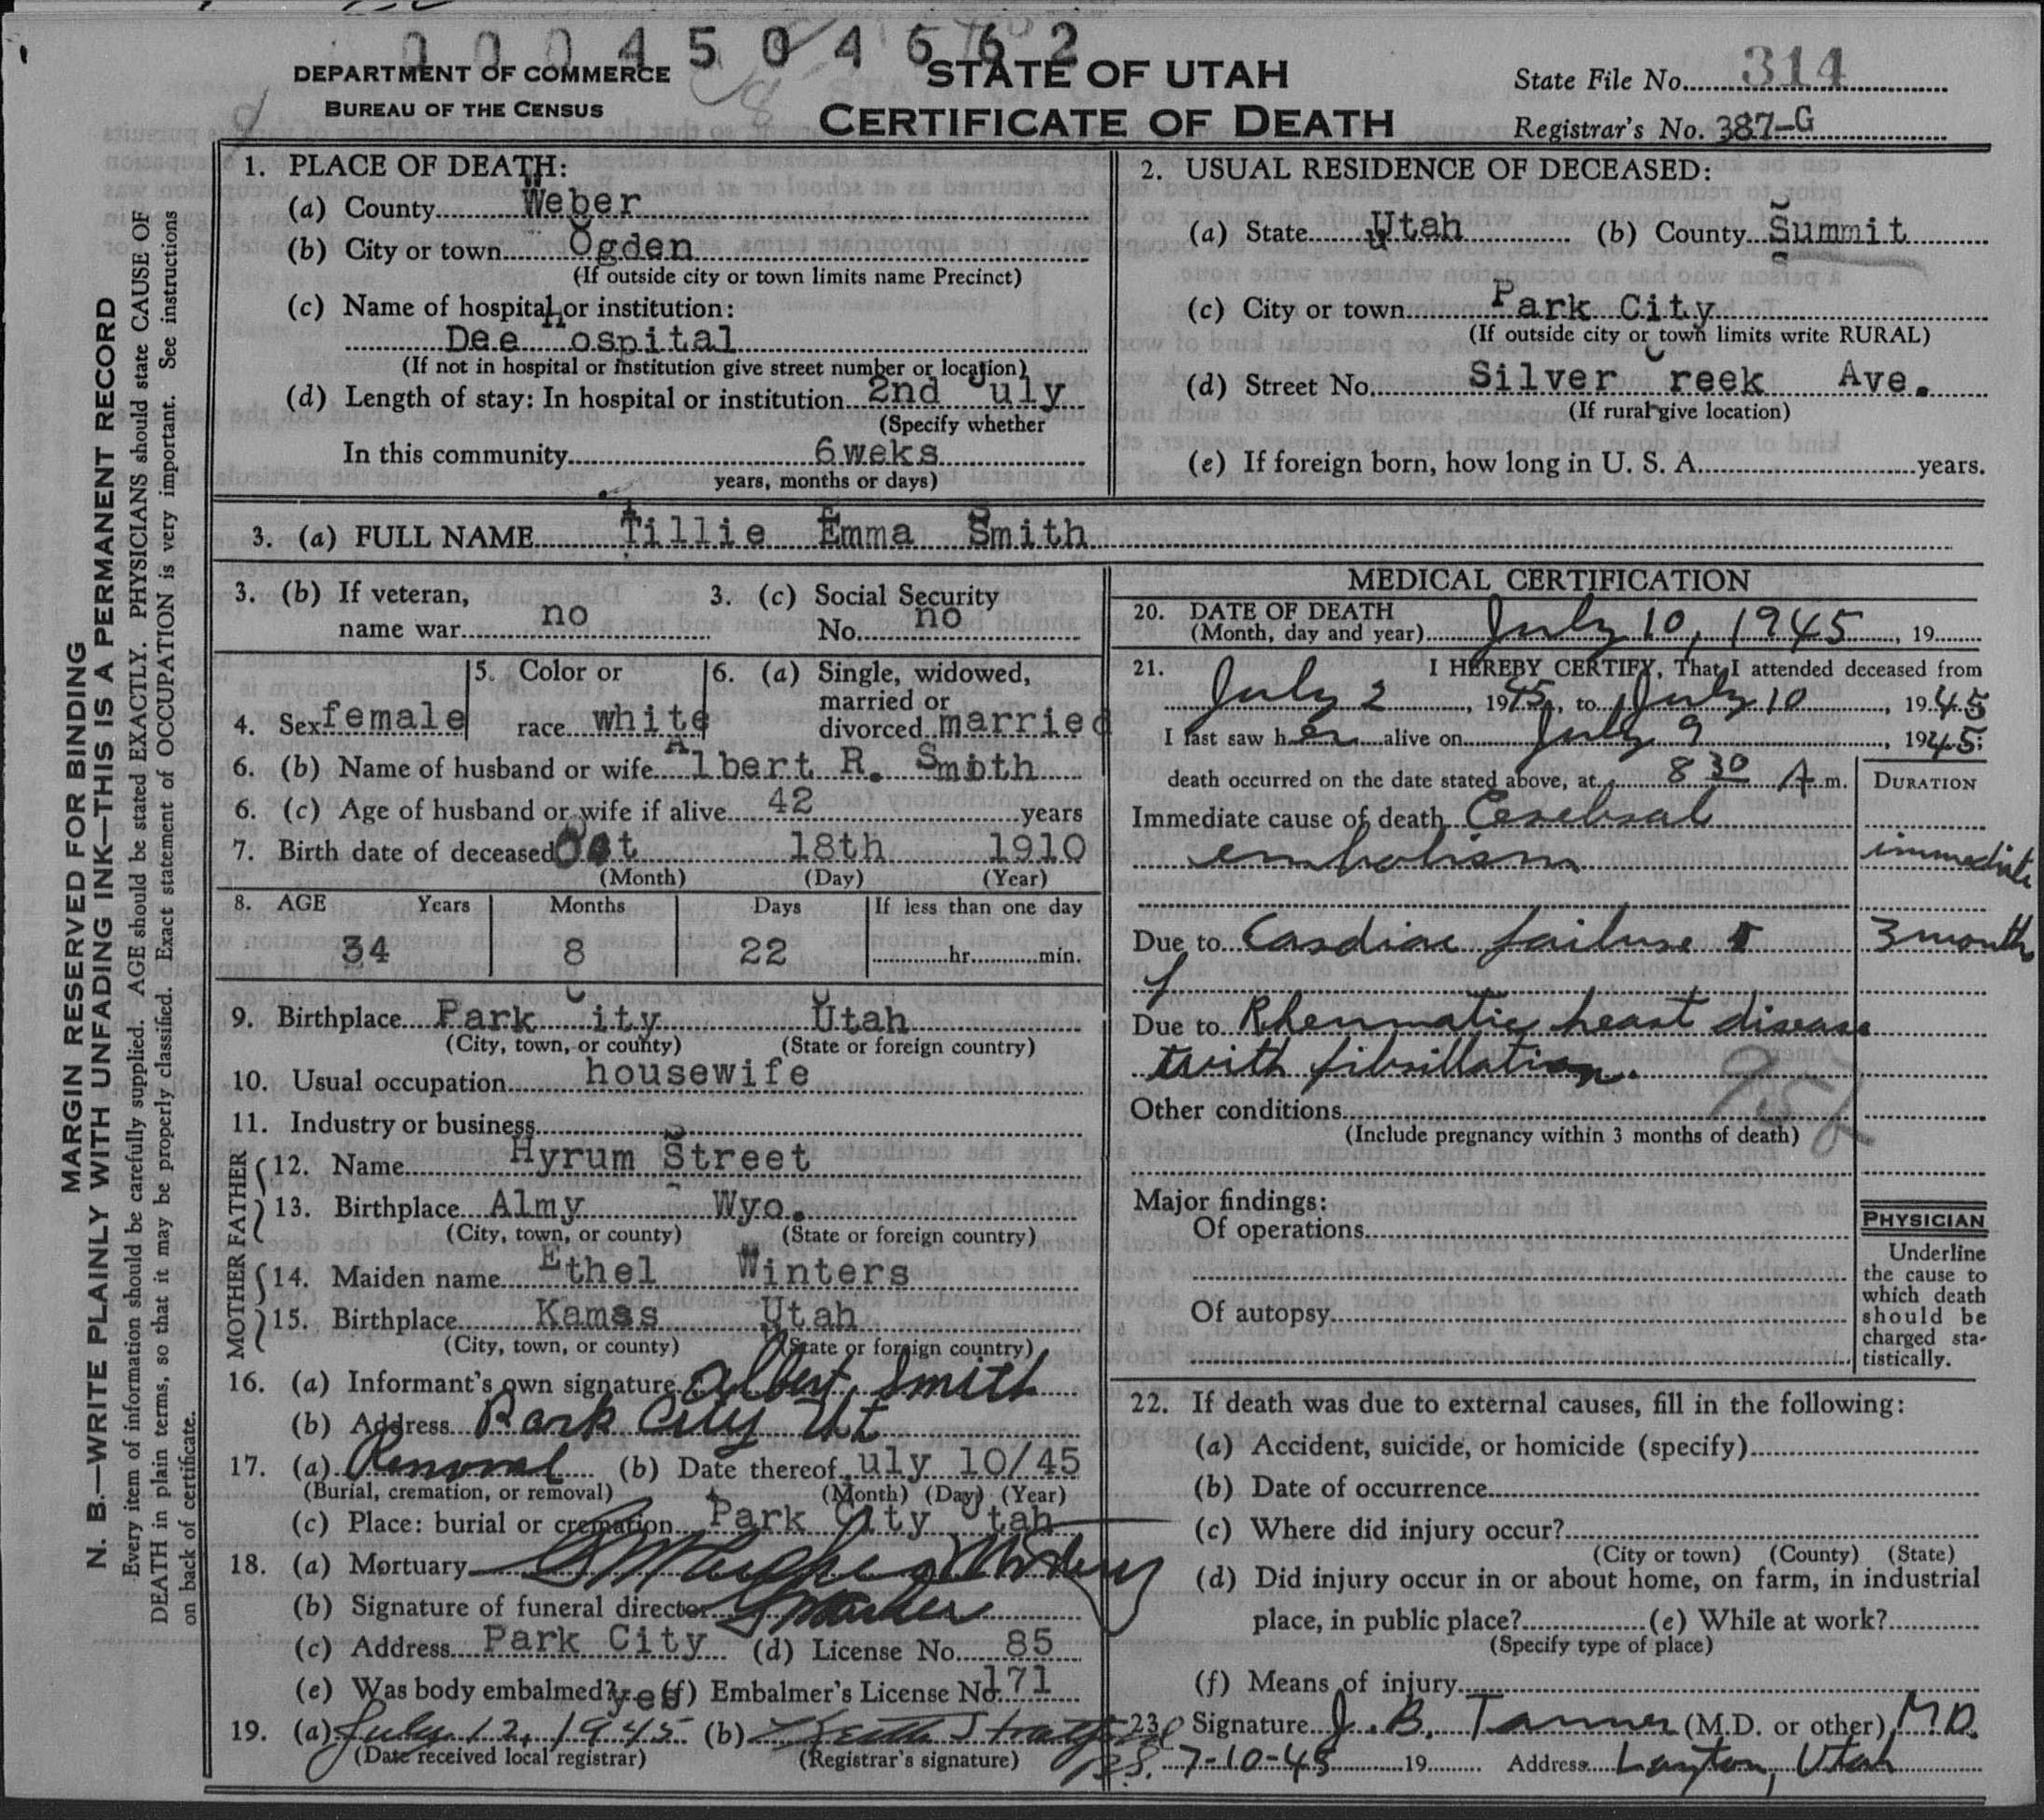 0004504662
DEPARTMENT OF COMMERCE
BUREAU OF THE CENSUS
STATE OF UTAH
CERTIFICATE OF DEATH
State File No. 314
Registrar's No. 387-G
MARGIN RESERVED FOR BINDING
N. B.—WRITE PLAINLY WITH UNFADING INK—THIS IS A PERMANENT RECORD
Every item of information should be carefully supplied. AGE should be stated EXACTLY. PHYSICIANS should state CAUSE OF
DEATH in plain terms, so that it may be properly classified. Exact statement of OCCUPATION is very important. See instructions
on back of certificate.
1. PLACE OF DEATH:
(a) County Weber
(b) City or town Ogden
(If outside city or town limits name Precinct)
(c) Name of hospital or institution:
Dee Hospital
(If not in hospital or institution give street number or location)
(d) Length of stay: In hospital or institution 2nd July
(Specify whether
In this community 6 weks
years, months or days)
2. USUAL RESIDENCE OF DECEASED:
(a) State Utah (b) County Summit
(c) City or town Park City
(If outside city or town limits write RURAL)
(d) Street No. Silver Creek Ave.
(If rural give location)
(e) If foreign born, how long in U. S. A. years.
3. (a) FULL NAME Tillie Emma Smith
3. (b) If veteran, name war no
3. (c) Social Security No. no
4. Sex female
5. Color or race white
6. (a) Single, widowed, married or divorced married
6. (b) Name of husband or wife Albert R. Smith
6. (c) Age of husband or wife if alive 42 years
7. Birth date of deceased Oct 18th 1910
(Month) (Day) (Year)
8. AGE Years Months Days If less than one day
34 8 22 hr. min.
9. Birthplace Park City Utah
(City, town, or county) (State or foreign country)
10. Usual occupation housewife
11. Industry or business
FATHER
12. Name Hyrum Street
13. Birthplace Almy Wyo.
(City, town, or county) (State or foreign country)
MOTHER
14. Maiden name Ethel Winters
15. Birthplace Kamas Utah
(City, town, or county) (State or foreign country)
16. (a) Informant's own signature Albert Smith
(b) Address Park City Ut
17. (a) Removal (b) Date thereof July 10/45
(Burial, cremation, or removal) (Month) (Day) (Year)
(c) Place: burial or cremation Park City Utah
18. (a) Mortuary
(b) Signature of funeral director
(c) Address Park City (d) License No. 85
(e) Was body embalmed? yes (f) Embalmer's License No. 171
19. (a) July 12, 1945 (b) Keith
(Date received local registrar) (Registrar's signature)
MEDICAL CERTIFICATION
20. DATE OF DEATH
(Month, day and year) July 10, 1945, 19
21. I HEREBY CERTIFY, That I attended deceased from
July 2, 1945, to July 10, 1945
I last saw her alive on July 9, 1945.
death occurred on the date stated above, at 8 30 A m.
DURATION
Immediate cause of death Cerebral
embolism immediate
Due to Cardiac failure 3 month
Due to Rheumatic heart disease
with fibrillation.
Other conditions
(Include pregnancy within 3 months of death)
Major findings:
Of operations
Of autopsy
PHYSICIAN
Underline
the cause to
which death
should be
charged sta-
tistically.
22. If death was due to external causes, fill in the following:
(a) Accident, suicide, or homicide (specify)
(b) Date of occurrence
(c) Where did injury occur?
(City or town) (County) (State)
(d) Did injury occur in or about home, on farm, in industrial
place, in public place? (e) While at work?
(Specify type of place)
(f) Means of injury
23. Signature J. B. Tanner (M.D. or other) M.D.
7-10-45 19 Address Layton, Utah